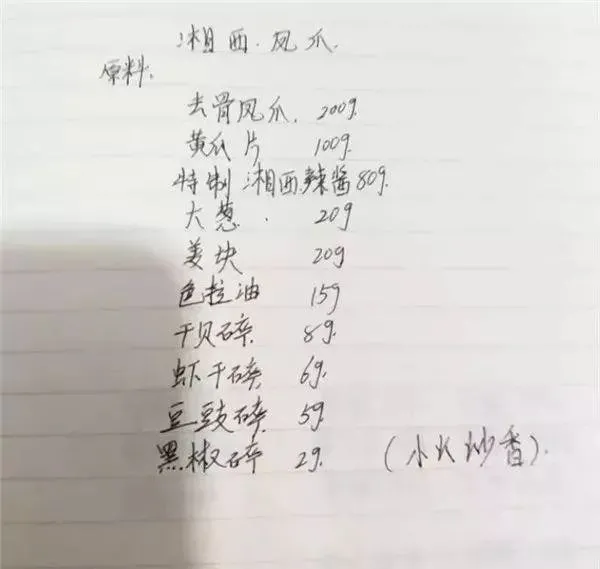 湘西凤爪.
原料.
去骨凤爪. 200g.
黄瓜片 100g.
特制湘西辣酱80g.
大葱. 20g
姜块 20g
色拉油 15g
干贝碎 8g.
虾干碎 6g.
豆豉碎 5g.
黑椒碎 2g. (小火炒香).